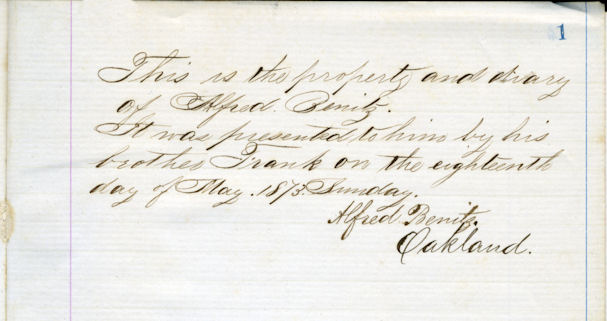 1
This is the property and diary
of Alfred. Benitz.
It was presented to him by his
brother Frank on the eighteenth
day of May. 1873. Sunday.
Alfred Benitz.
Oakland.